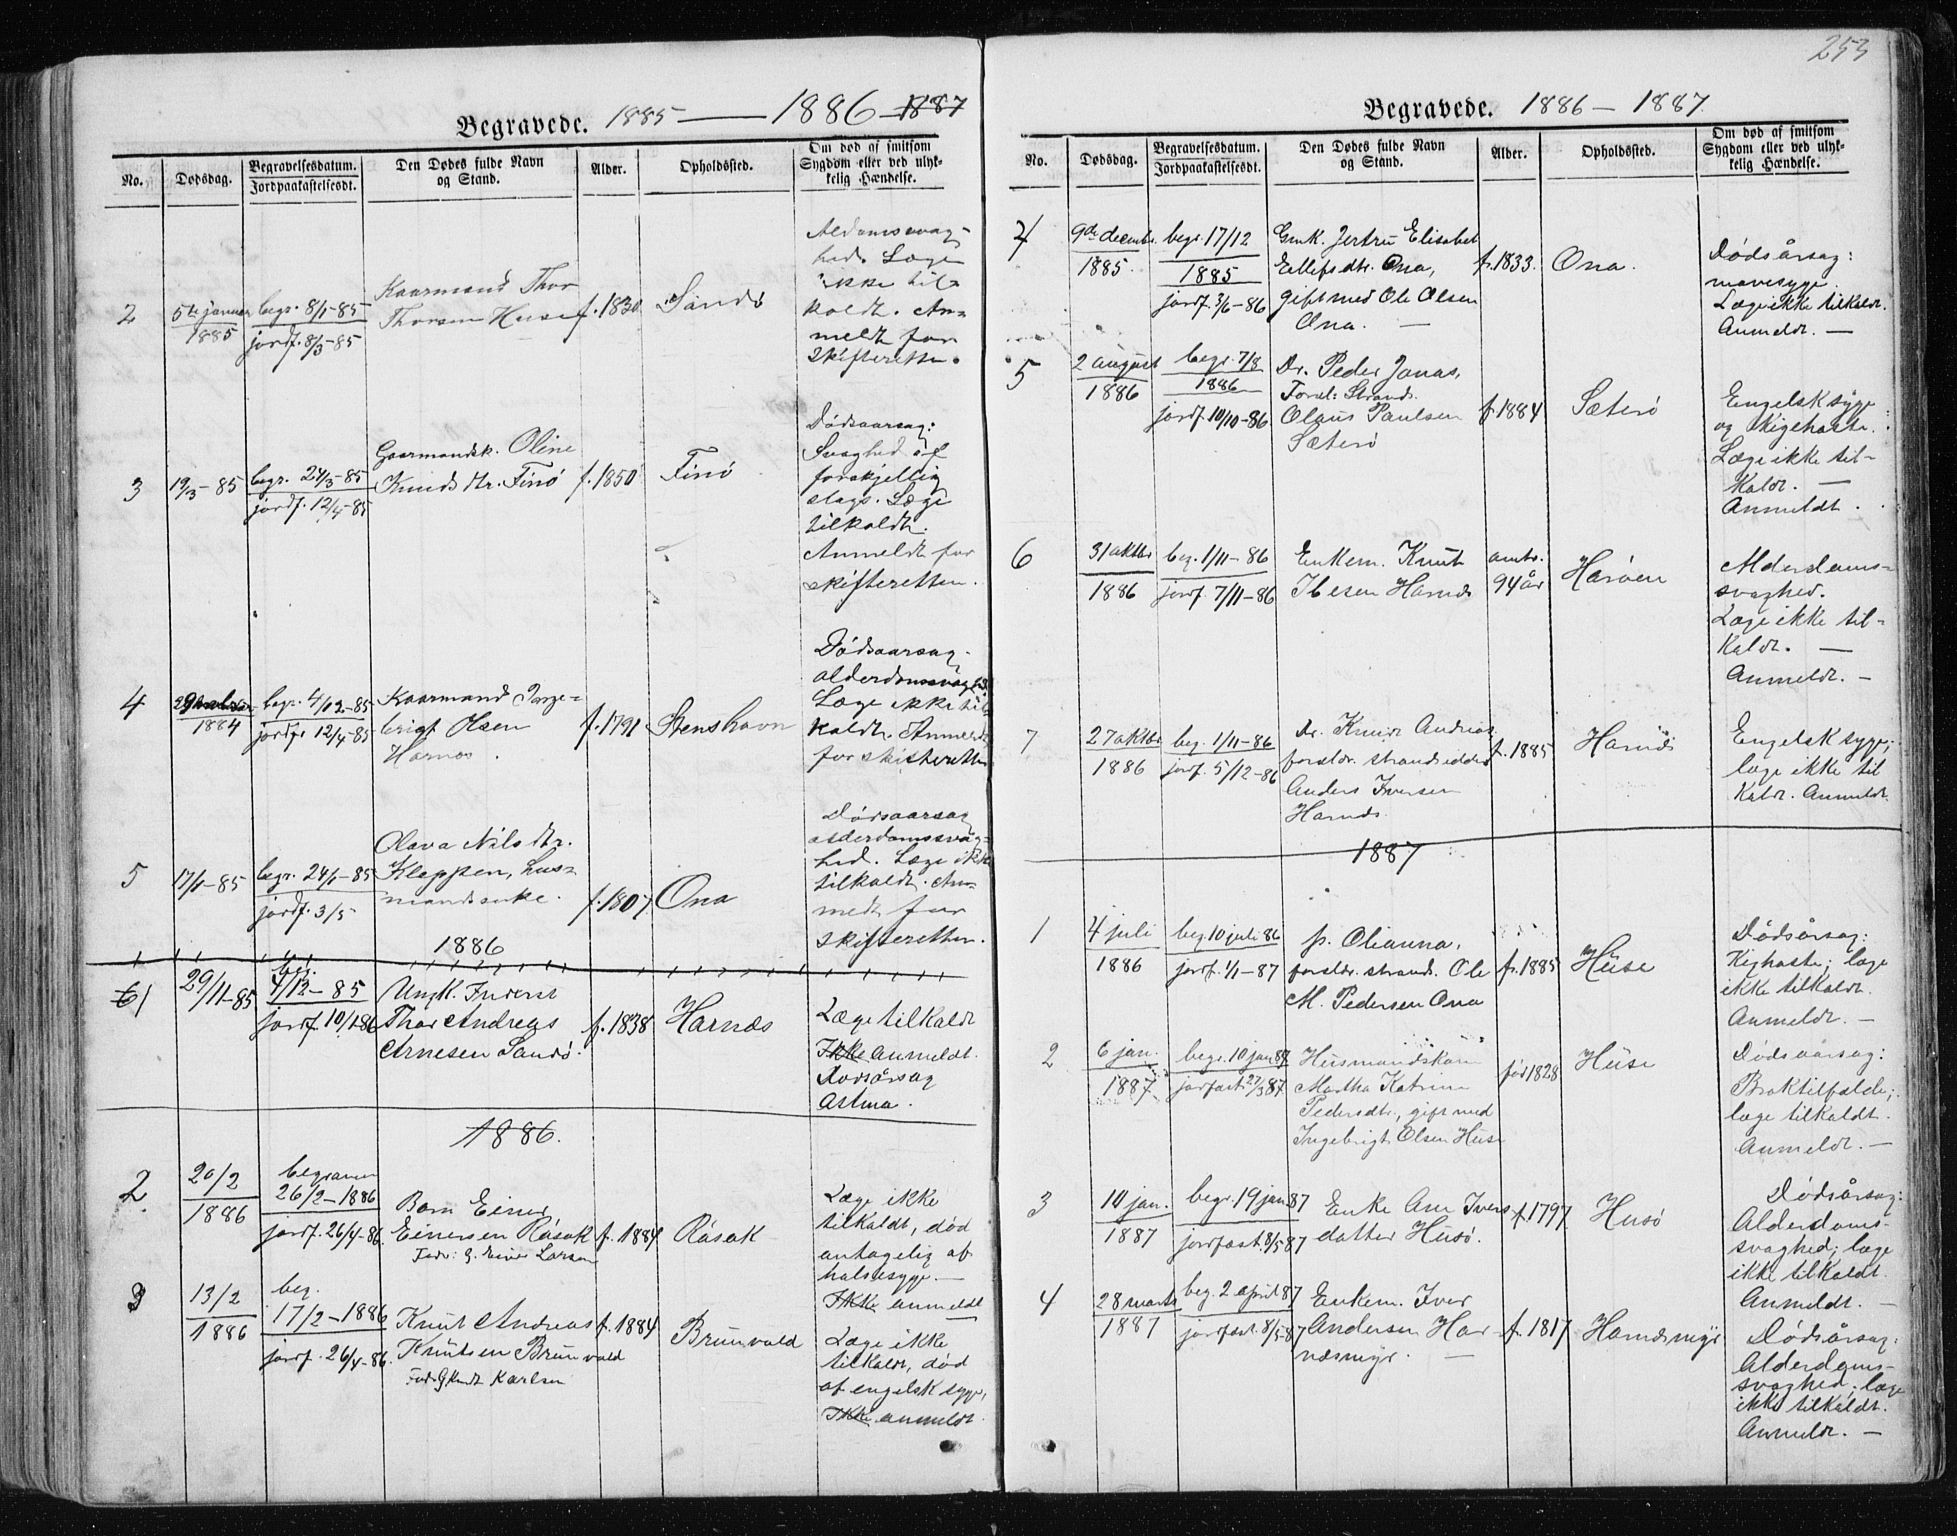 Begravede. 1885 — 1886 - 1887
No.
Dødsdag.
Begravelsesdatum.
Jordpaakastelsesdt.
Den Dødes fulde Navn
og Stand.
Alder.
Opholdssted.
Om død af smitsom
Sygdom eller ved ulyk-
kelig Hændelse.
2
5te januar
1885
begr. 8/1-85
jordf. 8/3-85
Kaarmand Thor
Thorsen Huse
f. 1830
Sandø
hed. Læge
ikke til-
kaldt. An-
meldt for
Skifteretten.
3
19/3-85
begr. 24/3-85
jordf. 12/4-85
Gaarmandsk. Oline
Knudsdtr. Finø
f. 1850
Finø
Dødsaarsag:
Svaghed af
forskjellig
slags. Læge
tilkaldt.
Anmeldt for
skifteretten.
4
1884
begr. 4/12-85
jordf. 12/4-85
Kaarmand Inge-
brigt Olsen
Harnes
f. 1791
Stenshavn
Dødsaarsag.
alderdomssvaghed.
Læge ikke til-
kaldt. Anmeldt
for skifteretten
5
17/1-85
begr. 24/1-85
jordf. 3/5
Olava Nilsdtr.
Kleppen, hus-
mandsenke.
f. 1807
Ona
Dødsaarsag
alderdomssvag-
hed. Læge ikke
tilkaldt. An-
meldt for
skifteretten.
1886
6 1
29/11-85
beg.
4/12-85
jordf. 10/1-86
Ungk.
Thor Andreas
Arnesen Sandø.
f. 1838
Harnæs
Læge tilkaldt
Ikke anmeldt.
Dødsårsag
Astma.
1886.
2
20/2
1886
begraven
26/2-1886
jordf. 26/4-86.
Barn Einer
Einersen Råsok
Fader: G. Einer Larsen
f. 1884
Råsok
Læge ikke
tilkaldt, død
antagelig af
halssyge. —
Ikke anmeldt
3
13/2
1886
beg.
17/2-1886
jordf. 26/4-86.
Knut Andreas
Knutsen Brunvold
Fad. G Knut Karlsen
f. 1884
Brunvold
Læge ikke
tilkaldt, død
af engelsk syge,
Ikke anmeldt.
253
Begravede. 1886 - 1887.
No.
Dødsdag.
Begravelsesdatum.
Jordpaakastelsesdt.
Den Dødes fulde Navn
og Stand.
Alder.
Opholdssted.
Om død af smitsom
Sygdom eller ved ulyk-
kelig Hændelse.
4
9de decembr.
1885.
begr. 17/12
1885
jordf. 3/6-86
Gmk. Jertru Elisabet
Ellefsdtr. Ona,
gift med Ole Olsen
Ona. —
f. 1833.
Ona.
Dødsårsag:
mavesyge.
Læge ikke tilkaldt.
Anmeldt. —
5
2 august
1886
begr. 7/8
1886
jordf. 10/10-86
Dr. Peder Jonas,
Foræl: Strands.
Olaus Paulsen
Sæterø
f. 1884
Sæterø
Engelsk syge
og Kighoste.
Læge ikke til-
kaldt. —
Anmeldt.
6
31 oktbr
1886
beg. 1/11-86
jordf. 7/11-86
Enkem. Knut
Ibesen Harnæs
omtr.
94 år
Harøen
Alderdoms-
svaghed.
Læge ikke til-
kaldt. —
Anmeldt. —
7
27 oktbr
1886
beg. 1/11-86
jordf. 5/12-86
Dr. Knut Andreas
foreldr. strandsidder
Anders Iversen
Harnæs.
f. 1885
Harnæs
Engelsk syge;
læge ikke til
kaldt. Anmeldt.
1887
1
4 juli
1886
beg. 10 juli 86
jordf. 1/1-87
p. Olianna,
foreldr. strands. Ole
M. Pedersen Ona
f. 1885
Huse
Dødsårsag:
Kighoste; læge
ikke tilkaldt.
Anmeldt. —
2
6 jan.
1887.
begr. 10 jan 87
jordfæst 27/3 87
Husmandskone
Martha Katrine
Pedersdtr, gift med
Ingebrigt Olsen Huse
født 1828
Huse
Dødsaarsag:
Broktilfælde;
læge tilkaldt.
Anmeldt. —
3
10 jan.
1887
begr. 19 jan 87
jordfæst. 8/5-87
Enke Ane Ivers
datter Husø.
f. 1797
Husø
Dødsårsag:
Alderdoms-
svaghed; læge
ikke tilkaldt.
Anmeldt. —
4
28 marts
1887
beg. 2 april 87
jordfæst. 8/5-87
Enkem. Iver
Andersen Har-
næsmyr. —
f. 1817
Harnæsmyr
Dødsårsag:
Alderdoms-
svaghed; læge
ikke tilkaldt.
Anmeldt. —